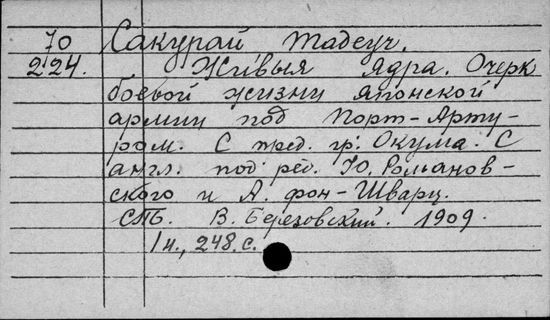 70 Сакурай Тадеуч.
2224. Живыя ядра. Очерк
боевой жизни японской
армии под Порт-Арту-
ром. С пред. гр. Окума. С
англ. под ред. Ю. Романов-
ского и А. фон-Шварц.
СПБ. В. Березовский. 1909.
1н., 248 с.